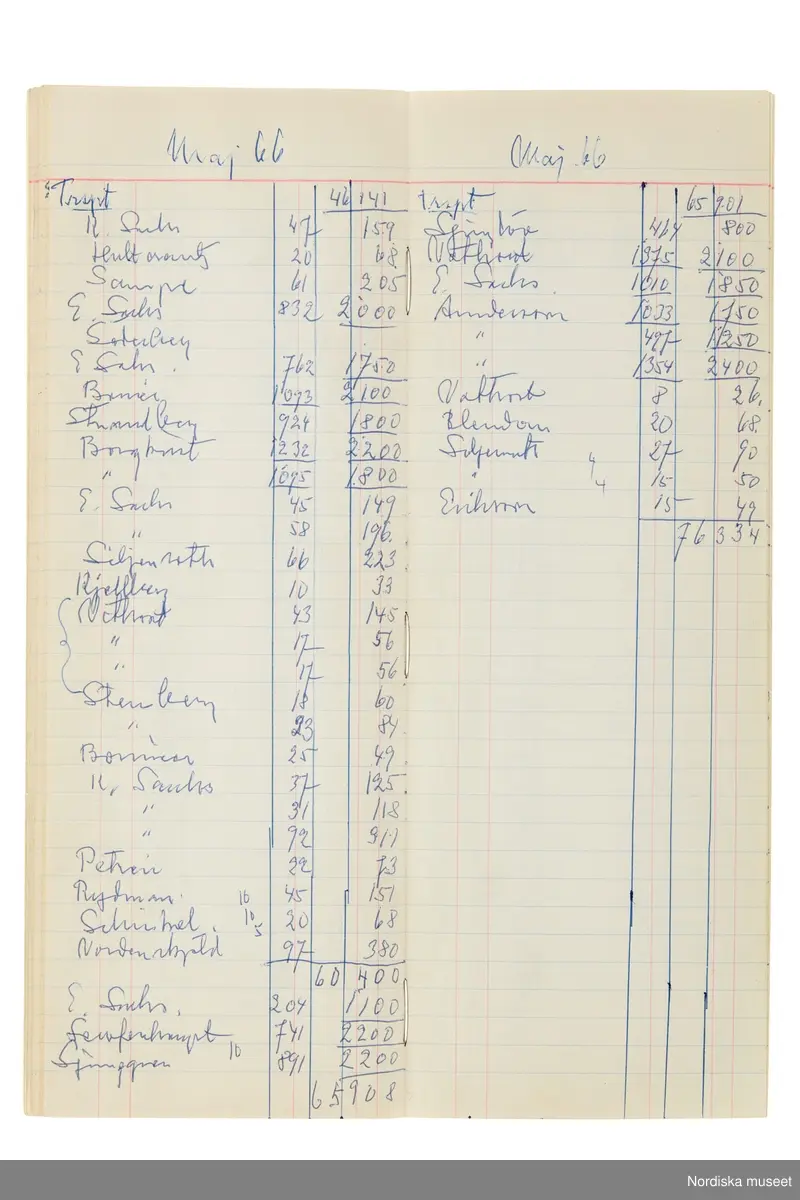 Maj 66
Trypt 46 141
K. Sachs 47 159
20 68
Sampe 61 205
E. Sachs 832 2000
Söderberg
E Sachs. 762 1750
Bonier 1093 2100
Strandberg 924 1800
1232 2200
" 1095 1800
E. Sachs 45 149
" 58 196.
Siljeroth 66 223
Kjellberg 10 33
Vathrat 43 145
" 17 56
" 17 56
Sternberg 18 60
" 23 84
Bonnier 25 49
K. Sachs 37 125
" 31 118
" 92 311
Petrén 22 73
Rydman. 10 45 151
Schinkel. 10 5 20 68
Nordenskjöld 97 380
60 400
E. Sachs. 204 1100
Lewenhaupt 741 2200
Ljunggren 10 891 2200
65 908
Maj 66
trypt 65 901
464 800
Vathrat 1375 2100
E. Sachs. 1010 1850
Andersson 1033 1750
" 497 1250
" 1354 2400
Vathrat 8 26.
20 68
27 90
" 15 50
Erikson 15 49
76 334
Nordiska museet